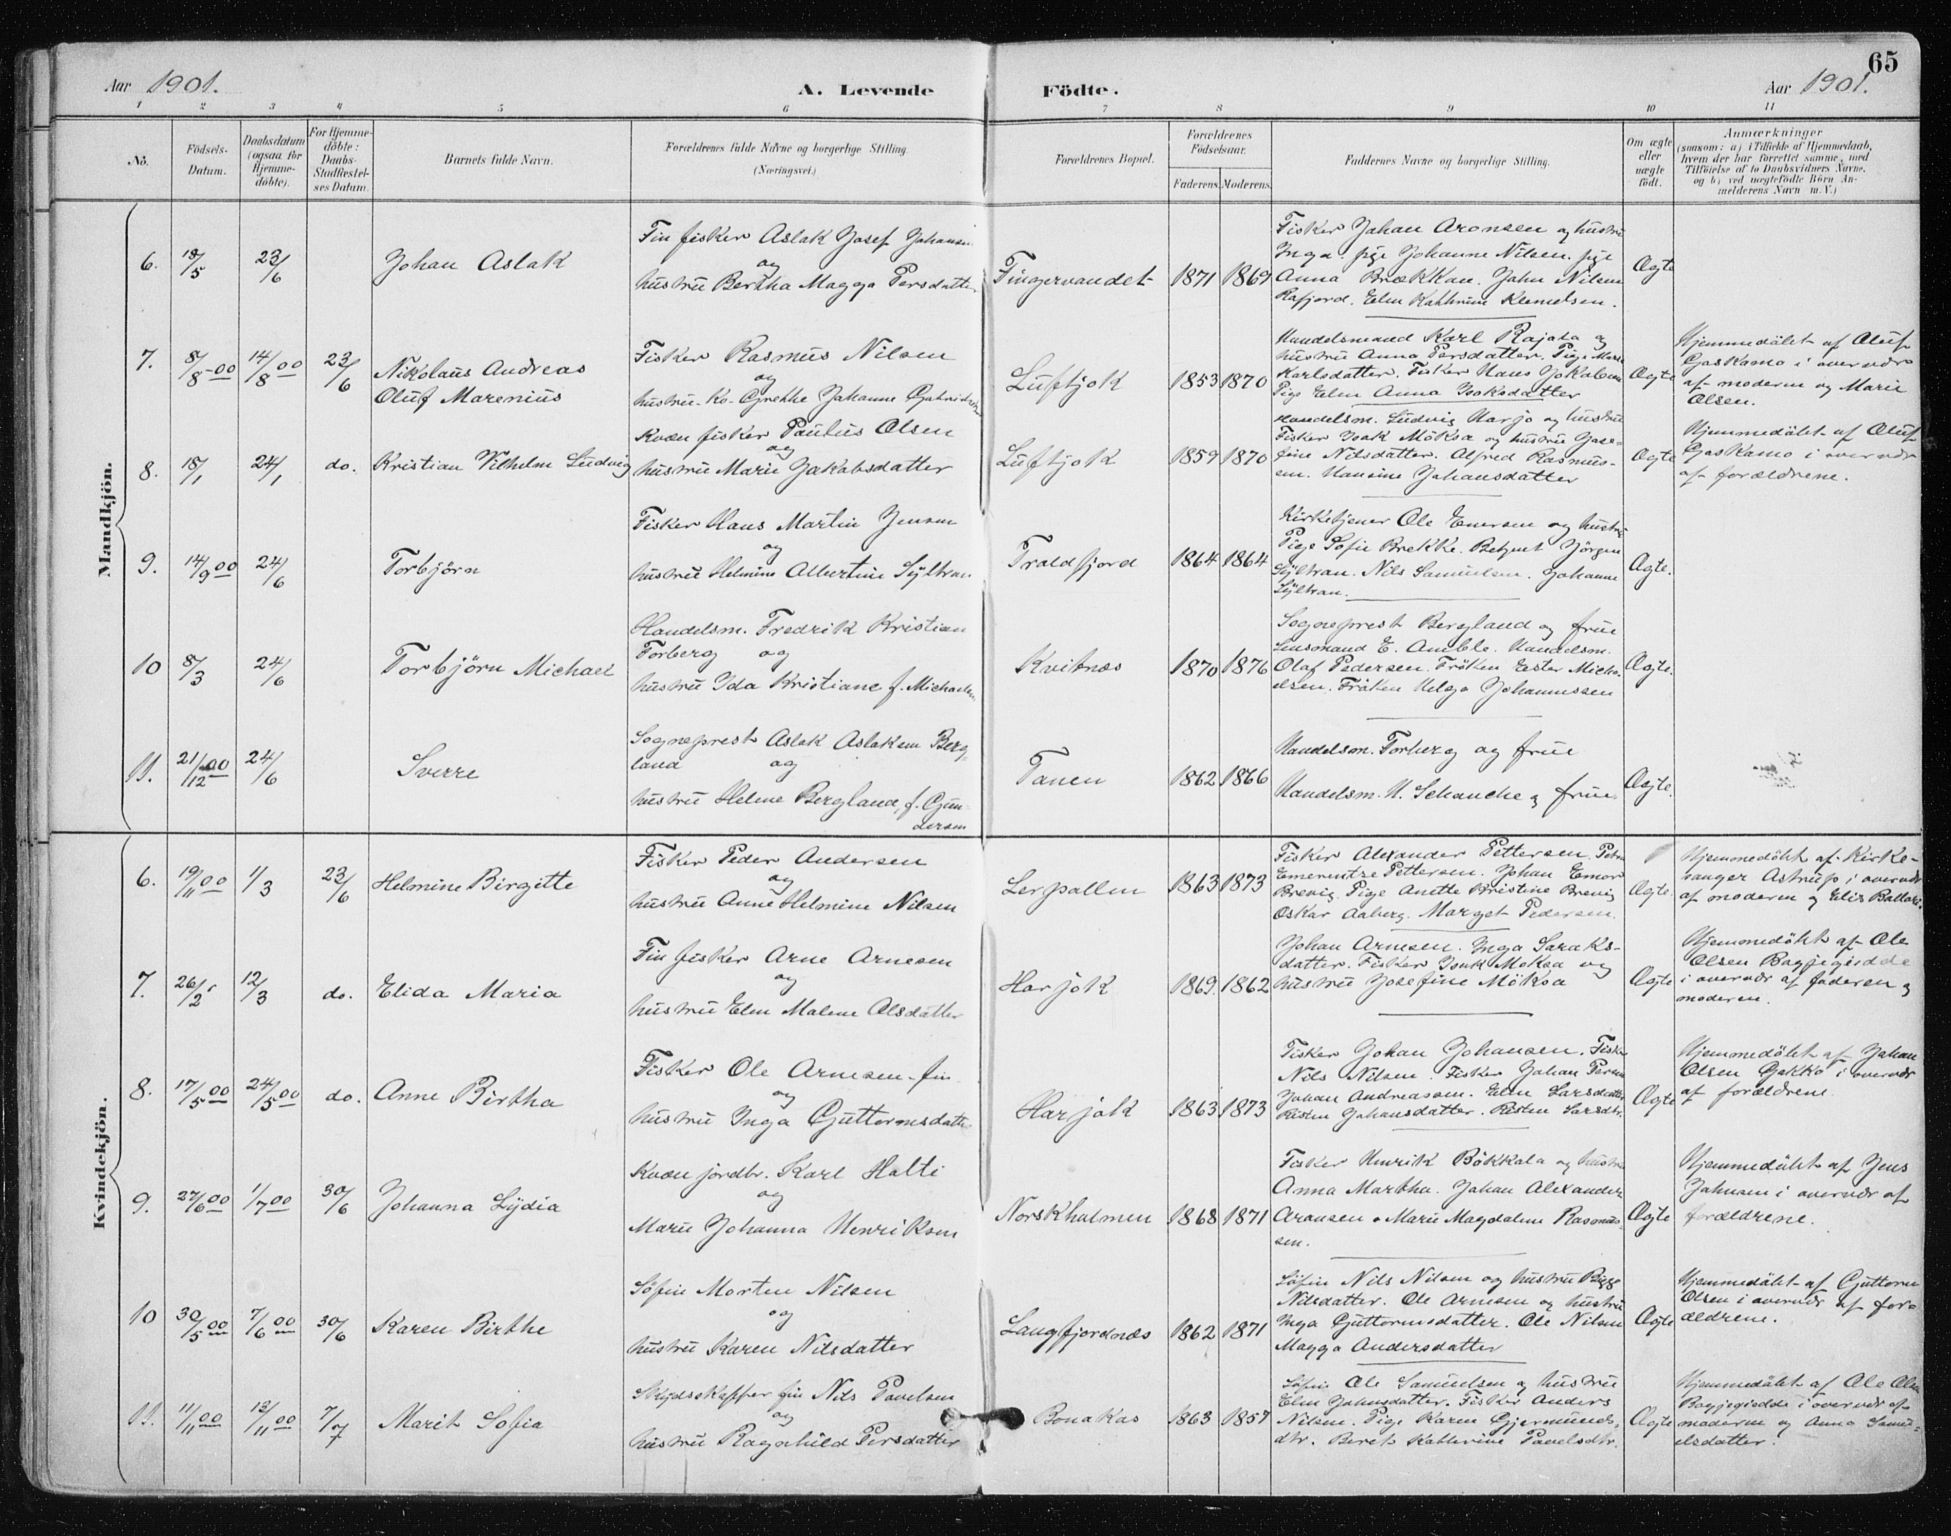 65
Aar 1901.
A. Levende Födte.
Aar 1901.
1 2 3 4 5 6 7 8 9 10 11
No.
Födsels-Datum.
Daabsdatum (ogsaa for Hjemme-döbte).
For Hjemme-döbte: Daabs-Stadfæstel-ses Datum.
Barnets fulde Navn.
Forældrenes fulde Navne og borgerlige Stilling. (Næringsvei.)
Forældrenes Bopæl.
Forældrenes Födselsaar.
Faderens. Moderens.
Faddernes Navne og borgerlige Stilling.
Om ægte eller uægte födt.
Anmærkninger
(saasom: a) i Tilfælde af Hjemmedaab,
hvem der har forrettet samme, med
Tilföielse af to Daabsvidners Navne,
og b) ved uægtefödte Börn An-
melderens Navn m. V.)
Mandkjön.
6. 18/5 23/6 Johan Aslak
Fin fisker Aslak Josef Johansen
og
hustru Bertha Magga Persdatter
Fingervandet 1871 1869
Fisker Johan Aronsen og hustru
Inga. pige Johanne Nilsen. pige
Anna Brækkan. John Nilsen
Rafjord. Elen Kathrine Klemetsen.
Ægte
7. 8/8-00 14/8 00 23/6 Nikolaus Andreas
Oluf Marenius
Fisker Rasmus Nilsen
og
hustru Grethe Johanne
Luftjok 1853 1870
Handelsmand Karl Rajala og
hustru Anna Persdatter. Pige Marie
Karlsdatter. Fisker Hans Jakobsen
Pige Elen Anna Isaksdatter
Ægte
Hjemmedöbt af Oluf
Gaskamo i overvær
af moderen og Marie
Olsen.
8. 18/1 24/1 do. Kristian Vilhelm Ludvig
Kvæn fisker Paulus Olsen
og
hustru Marie Jakobsdatter
Luftjok 1859 1870
Handelsm. Ludvig Harjo og hustru
Fisker Isak Möksa og hustru Jose-
fine Nilsdatter. Alfred Rasmus-
sen. Hansine Johansdatter
Ægte
Hjemmedöbt af Oluf
Gaskamo i overvær
af forældrene.
9. 14/9 00 24/6 Torbjörn
Fisker Hans Martin Jensen
og
hustru Helmine Albertine Syltran
Troldfjord 1864 1864
Kirketjener Ole Enersen og hustru
Pige Sofie Brekke. Betjent Jörgen
Syltran. Nils Samuelsen. Johanne
Syltran.
Ægte.
10 8/3 24/6 Torbjörn Michael
Handelsm. Fredrik Kristian
Torberg og
hustru Ida Kristiane f. Michaelsen
Kvitnæs 1870 1876
Sogneprest Bergland og frue
Lensmand E. Amble. Handelsm.
Olaf Pedersen. Fröken Ester Micha-
elsen. Fröken Helga Johannessen
Ægte.
11. 21/12 00 24/6 Sverre
Sogneprest Aslak Aslaksen Berg-
land og
hustru Helene Bergland, f. Gun-
dersen
Tanen 1862 1866
Handelsm. Torberg og frue
Handelsm. H. Schanche og frue
Ægte.
Kvindekjön.
6. 19/11 00 1/3 23/6 Helmine Birgitte
Fisker Peder Andersen
og
hustru Anne Helmine Nilsen
Lerpollen 1863 1873
Fisker Alexander Pettersen. Petra
Emerentze Pettersen. Johan Emor
Brevig. Pige Anette Kristine Brevig
Oskar Aaberg. Marget Pedersen.
Ægte.
Hjemmedöbt af Kirke-
sanger Astrup i overvær
af moderen og Elis
7. 26/2 12/3 do. Elida Maria
Fin fisker Arne Arnesen
og
hustru Elen Malene Olsdatter
Harjok 1869. 1862
Johan Arnesen. Inga Saraks-
datter. Fisker Isak Möksa og
hustru Josefine Möksa
Ægte
Hjemmedöbt af Ole
Olsen Bagjegiedde
i overvær af faderen og
moderen.
8. 17/5 00 24/5 00 do. Anne Birtha
Fisker Ole Arnesen fin
og
hustru Inga Guttormsdatter
Harjok 1863 1873
Fisker Johan Johansen. Fisker
Nils Nilsen. Fisker Johan
Johan Andreassen. Elen Larsdatter
Risten Johansdatter. Risten Larsdtr.
Ægte
Hjemmedöbt af Johan
Olsen Gakko i overvær
af forældrene.
9. 27/6 00 1/7 00 30/6 Johanna Lydia
Kvæn jordbr. Karl Halti
og
Marie Johanna Henriksen
Norskholmen 1868 1871
Fisker Henrik Bökkala og hustru
Anna Martha. Johan Alexander
Aronsen. Marie Magdalene Rasmus-
sen.
Ægte
Hjemmedöbt af Jens
Johnsen i overvær af
forældrene.
10 30/5 00 7/6 00 30/6 Karen Birthe
Söfin Morten Nilsen
og
hustru Karen Nilsdatter
Langfjordnæs 1862 1871
Söfin Nils Nilsen og hustru Bigge
Nilsdatter. Ole Arnesen og hustru
Inga Guttormsdatter. Ole Nilsen
Magga Andersdatter
Ægte
Hjemmedöbt af Guttorm
Olsen i overvær af for-
ældrene.
11. 11/11 00 13/11 00 7/7 Marit Sofia
Skydsskaffer fin Nils Pavelsen
og
hustru Ragnhild Persdatter
Bonakas 1863 1857
Söfin Ole Samuelsen og hustru
Elen Johnsdatter. Fisker Anders
Nilsen. Pige Karen Gjermunds-
dtr. Beret Kathrine Pavelsdtr.
Ægte
Hjemmedöbt af Ole Olsen
Bagjegiedde i overvær af
moderen og Anna Samu-
elsdatter.